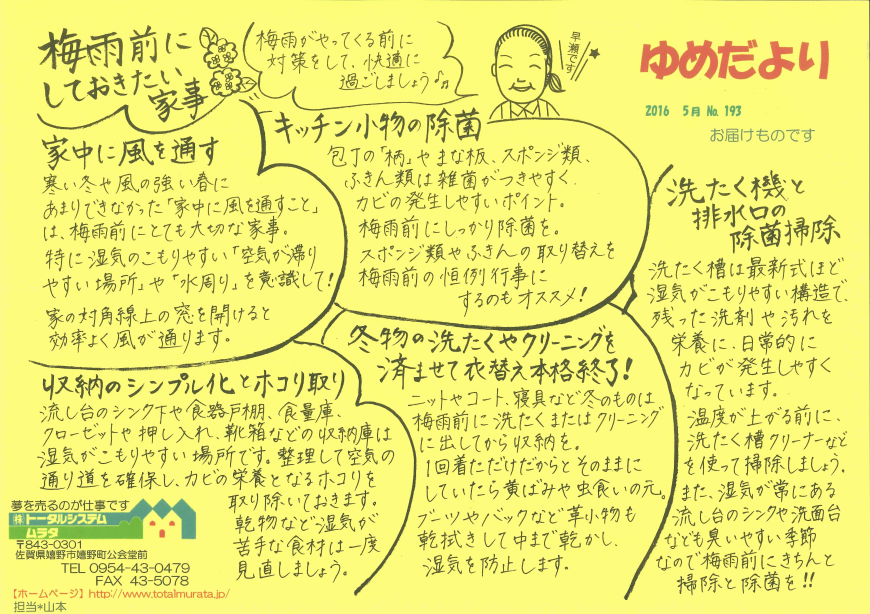 ゆめだより
2016 5月 No. 193
お届けものです
梅雨前に
しておきたい
家事
梅雨がやってくる前に
対策をして、快適に
過ごしましょう♪♫
早瀬です
家中に風を通す
寒い冬や風の強い春に
あまりできなかった「家中に風を通すこと」
は、梅雨前にとても大切な家事。
特に湿気のこもりやすい「空気が滞り
やすい場所」や「水周り」を意識して!
家の対角線上の窓を開けると
効率よく風が通ります。
キッチン小物の除菌
包丁の「柄」やまな板、スポンジ類、
ふきん類は雑菌がつきやすく、
カビの発生しやすいポイント。
梅雨前にしっかり除菌を。
スポンジ類やふきんの取り替えを
梅雨前の恒例行事に
するのもオススメ!
洗たく機と
排水口の
除菌掃除
洗たく槽は最新式ほど
湿気がこもりやすい構造で、
残った洗剤や汚れを
栄養に、日常的に
カビが発生しやすく
なっています。
温度が上がる前に、
洗たく槽クリーナーなど
を使って掃除しましょう。
また、湿気が常にある
流し台のシンクや洗面台
なども臭いやすい季節
なので梅雨前にきちんと
掃除と除菌を!!
収納のシンプル化とホコリ取り
流し台のシンク下や食器戸棚、食量庫、
クローゼットや押し入れ、靴箱などの収納庫は
湿気がこもりやすい場所です。整理して空気の
通り道を確保し、カビの栄養となるホコリを
取り除いておきます。
乾物など湿気が
苦手な食材は一度
見直しましょう。
冬物の洗たくやクリーニングを
済ませて衣替え本格終了!
ニットやコート、寝具など冬のものは
梅雨前に洗たくまたはクリーニング
に出してから収納を。
1回着ただけだからとそのままに
していたら黄ばみや虫食いの元。
ブーツやバックなど革小物も
乾拭きして中まで乾かし、
湿気を防止します。
夢を売るのが仕事です
(株)トータルシステム
ムラタ
〒843-0301
佐賀県嬉野市嬉野町公会堂前
TEL 0954-43-0479
FAX 43-5078
【ホームページ】http://www.totalmurata.jp/
担当*山本